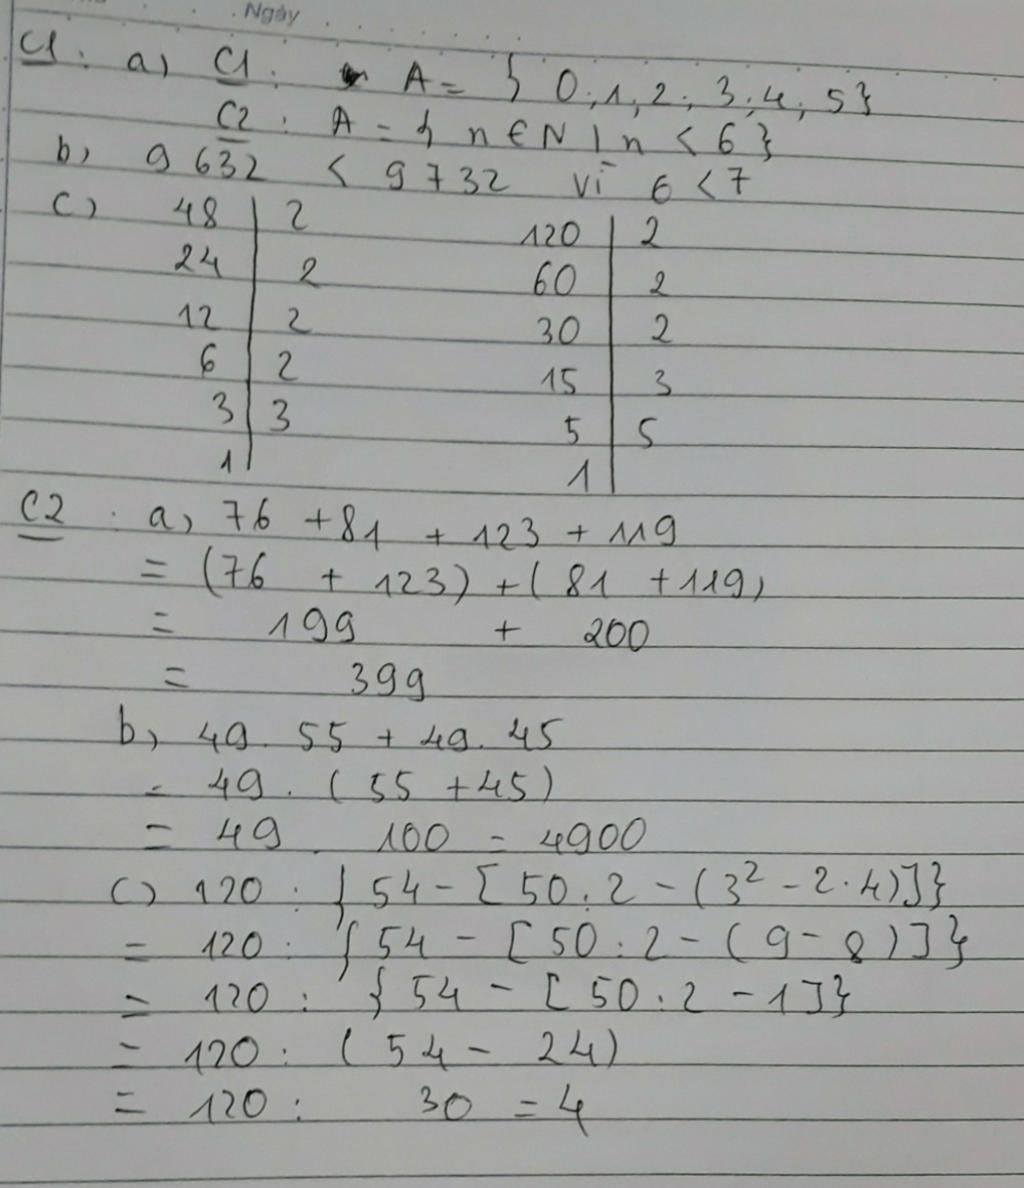 Ngày
C1: a) C1: A = { 0; 1; 2; 3; 4; 5}
C2: A = { n ∈ N | n < 6 }
b) 9 632 < 9 732 vì 6 < 7
c) 48 | 2 120 | 2
24 | 2 60 | 2
12 | 2 30 | 2
6 | 2 15 | 3
3 | 3 5 | 5
1 | 1 |
C2: a) 76 + 81 + 123 + 119
= (76 + 123) + (81 + 119)
= 199 + 200
= 399
b) 49 . 55 + 49 . 45
= 49 . (55 + 45)
= 49 . 100 = 4900
c) 120 : { 54 - [ 50 : 2 - (3² - 2.4)]}
= 120 : { 54 - [ 50 : 2 - ( 9 - 8 ) ] }
= 120 : { 54 - [ 50 : 2 - 1 ]}
= 120 : ( 54 - 24)
= 120 : 30 = 4